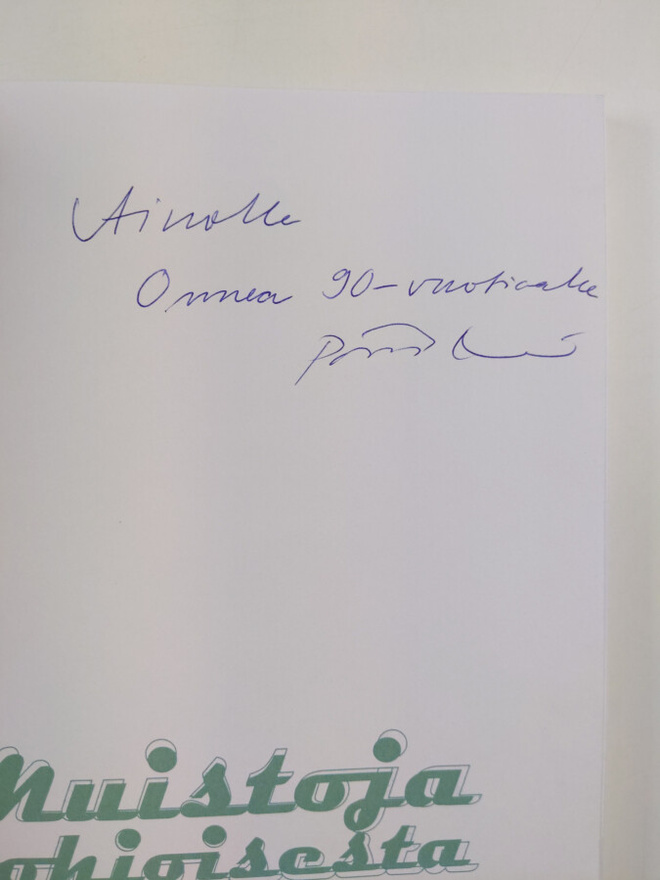 Ainolle
Onnea 90-vuotiaalle
Muistoja
ohjoisesta